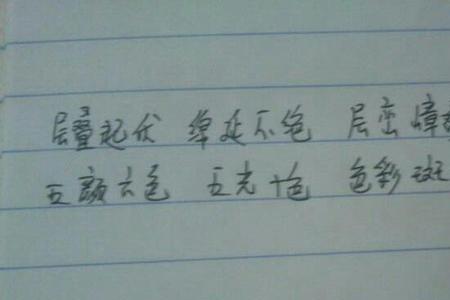 层叠起伏 绵延不绝 层峦嶂
五颜六色 五光十色 色彩斑